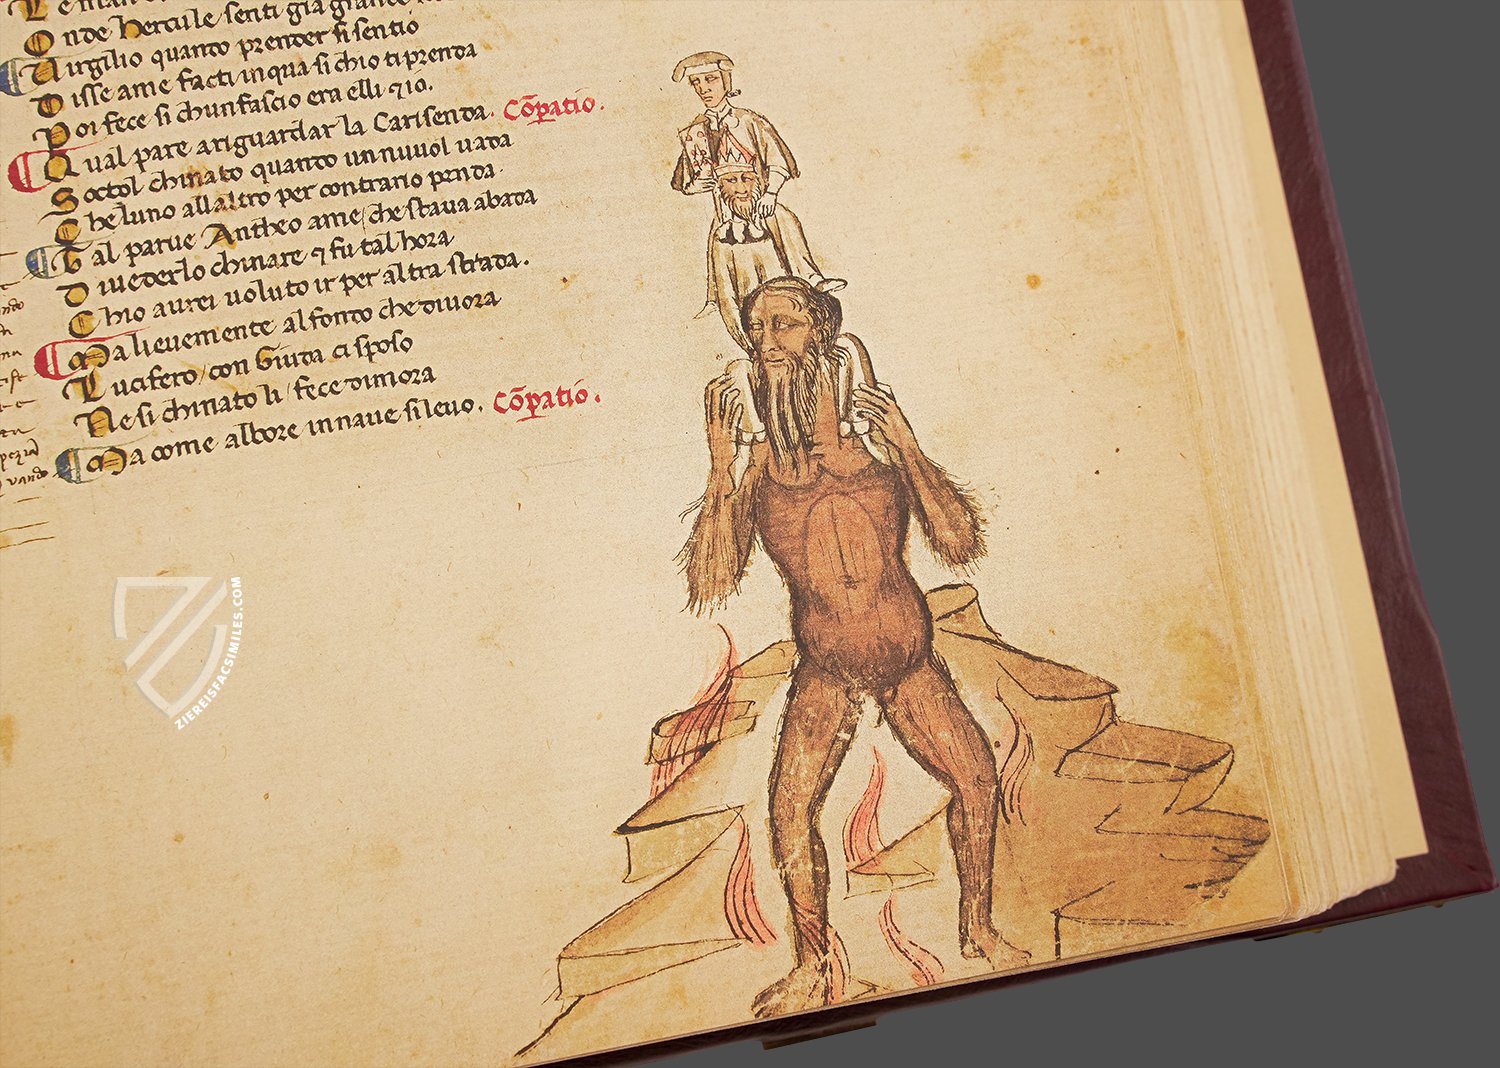 Onde hercule senti gia grande
Uirgilio quando prender si sentio
Disse ame facti in qua si chio ti prenda
Poi fece si chun fascio era elli ⁊ io.
Qual pare a riguardar la Carisenda. Cōpatio.
Soctol chinato quanto un nuuol uada
Che luno allaltro per contrario penda.
Tal parue Antheo ame / che staua abada
Diuederlo chinare ⁊ fu tal hora
Chio aurei uoluto ir per altra strada.
Ma lieuemente al fondo che diuora
Lucifero / con Giuda ci sposo
Ne si chinato li / fece dimora
Ma come albore in naue si leuo. Cōpatio.
ZIEREISFACSIMILES.COM